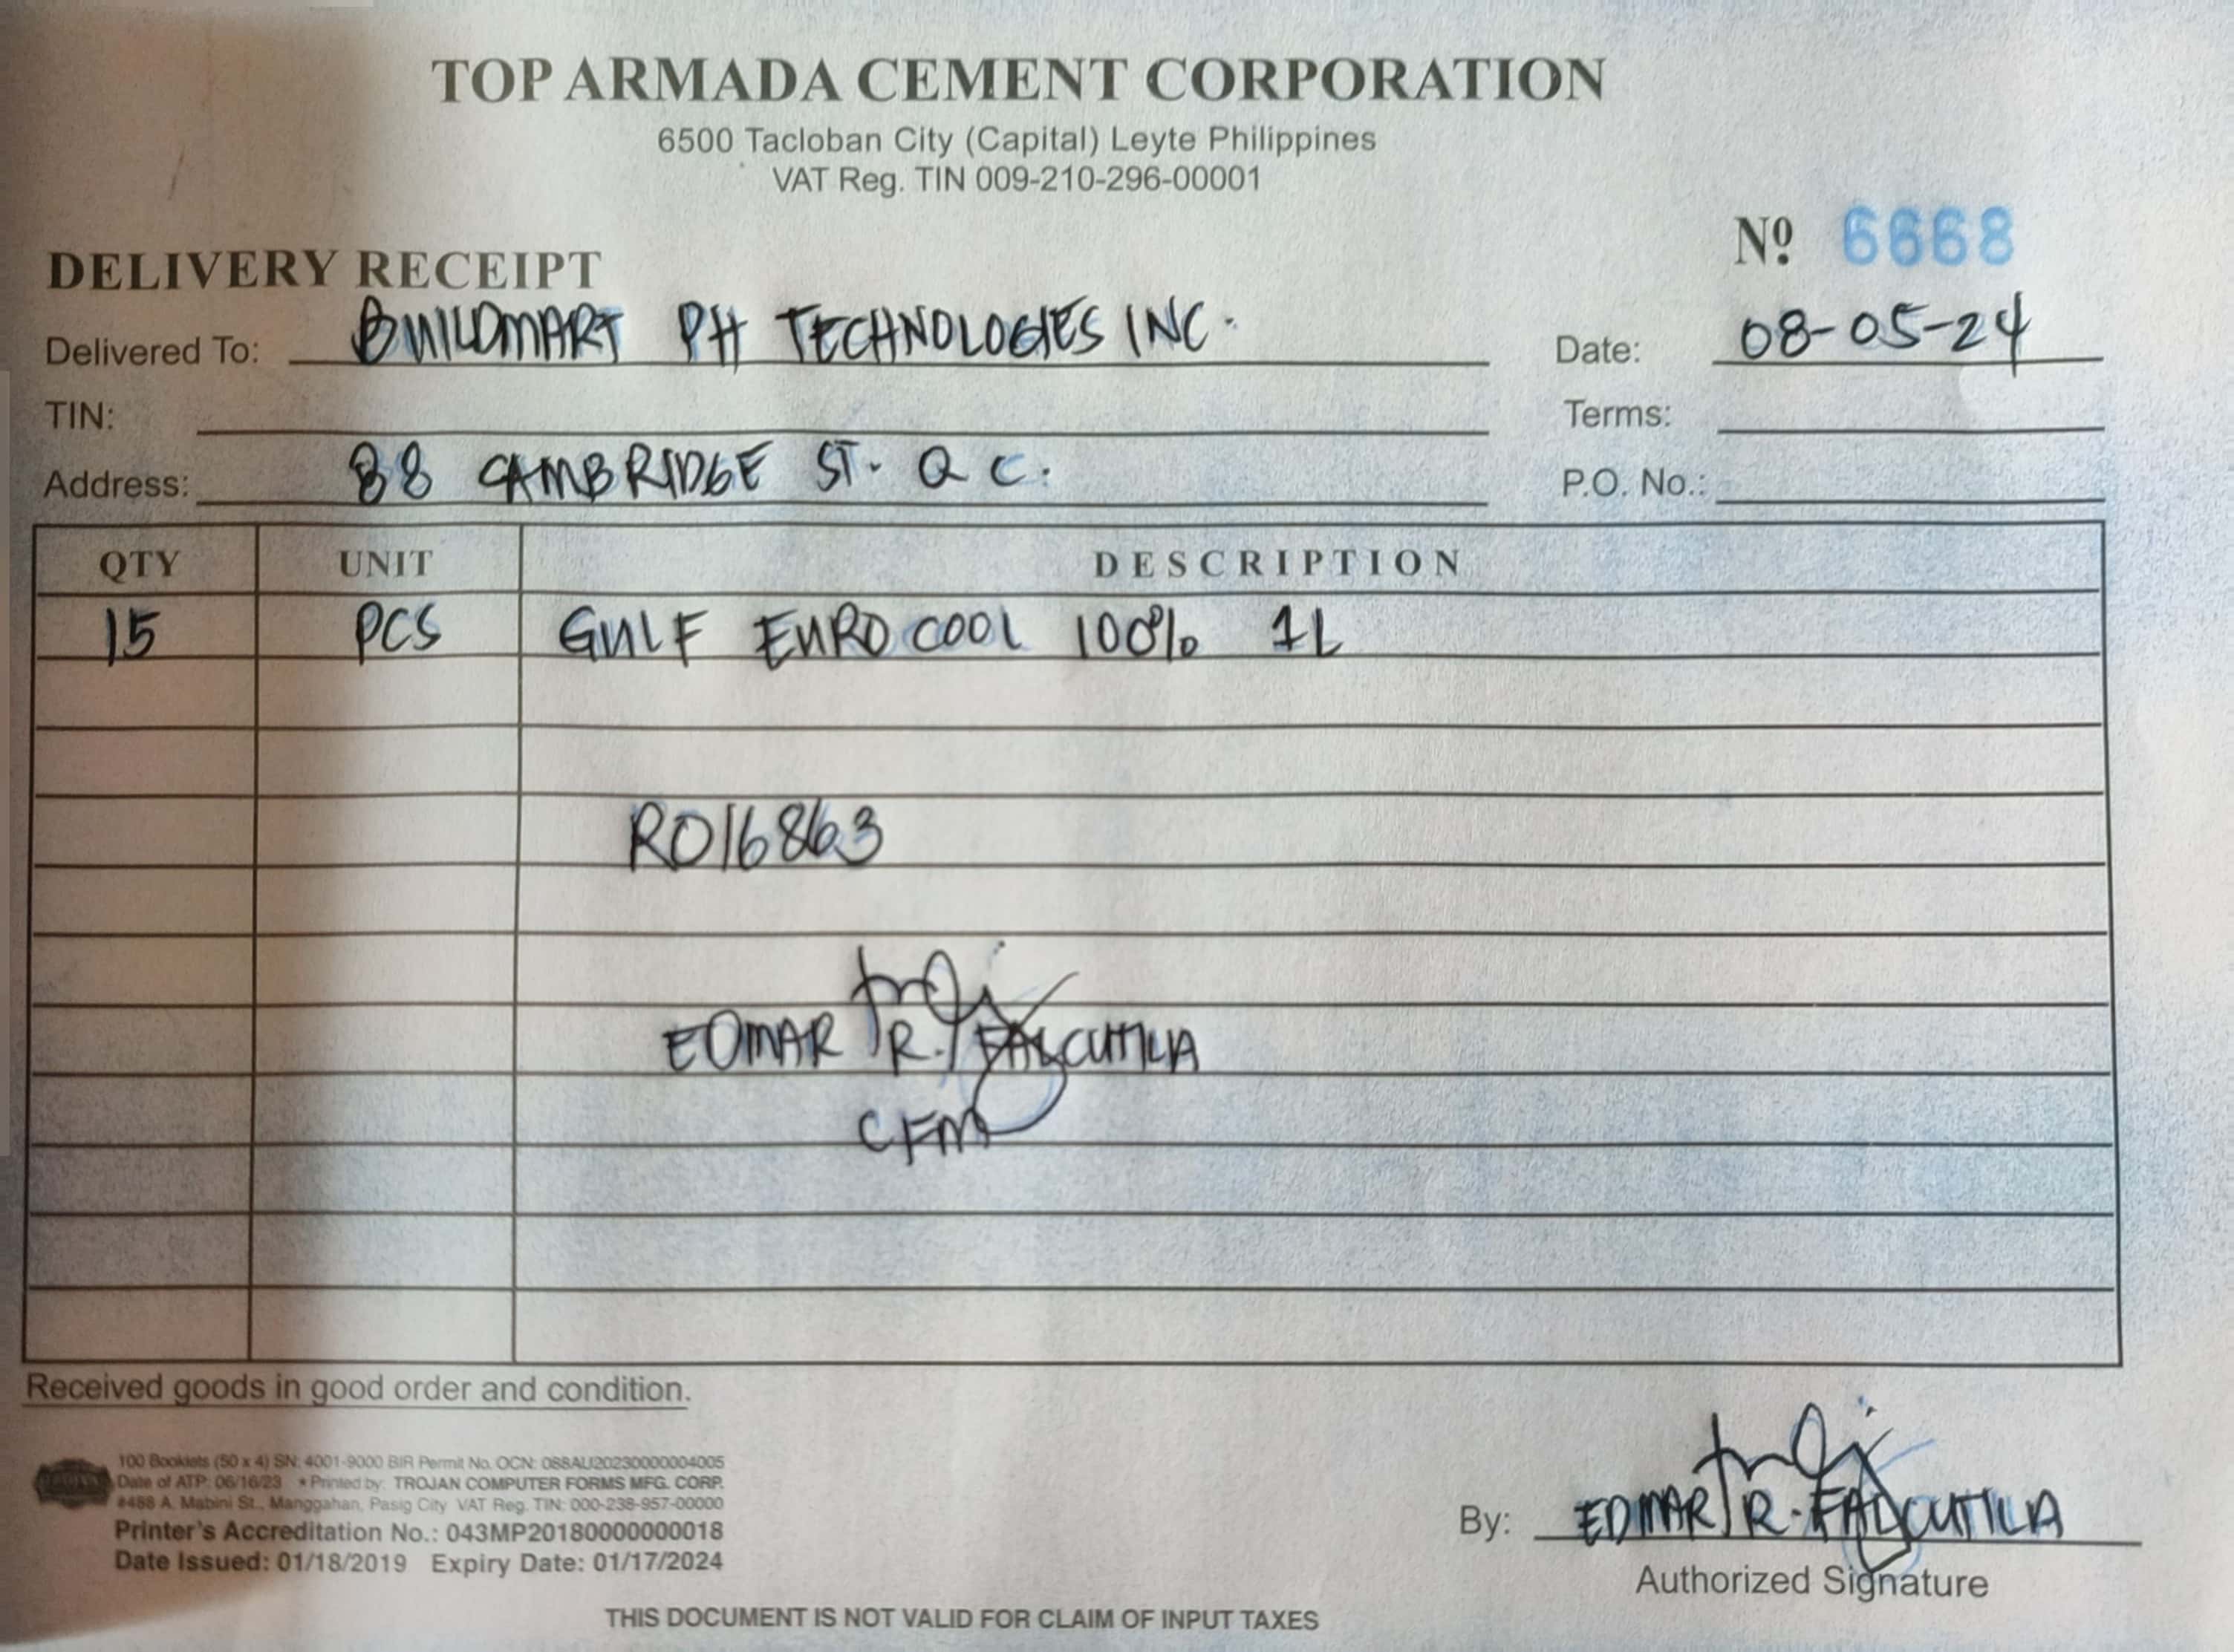 TOP ARMADA CEMENT CORPORATION
6500 Tacloban City (Capital) Leyte Philippines
VAT Reg. TIN 009-210-296-00001
Nº 6668
DELIVERY RECEIPT
Delivered To: BUILDMART PH TECHNOLOGIES INC.
Date: 08-05-24
TIN:
Terms:
Address: 88 CAMBRIDGE ST. Q C.
P.O. No.:
QTY UNIT DESCRIPTION
15 PCS GULF EURO COOL 100% 1L
RO16863
EDMAR R. FALCUTILA
CFM
Received goods in good order and condition.
100 Booklets (50 x 4) SN: 4001-9000 BIR Permit No. OCN: 088AU20230000004005
Date of ATP: 06/16/23 * Printed by: TROJAN COMPUTER FORMS MFG. CORP.
#468 A. Mabini St., Manggahan, Pasig City VAT Reg. TIN: 000-238-957-00000
Printer's Accreditation No.: 043MP20180000000018
Date Issued: 01/18/2019 Expiry Date: 01/17/2024
By: EDMAR R. FALCUTILA
Authorized Signature
THIS DOCUMENT IS NOT VALID FOR CLAIM OF INPUT TAXES